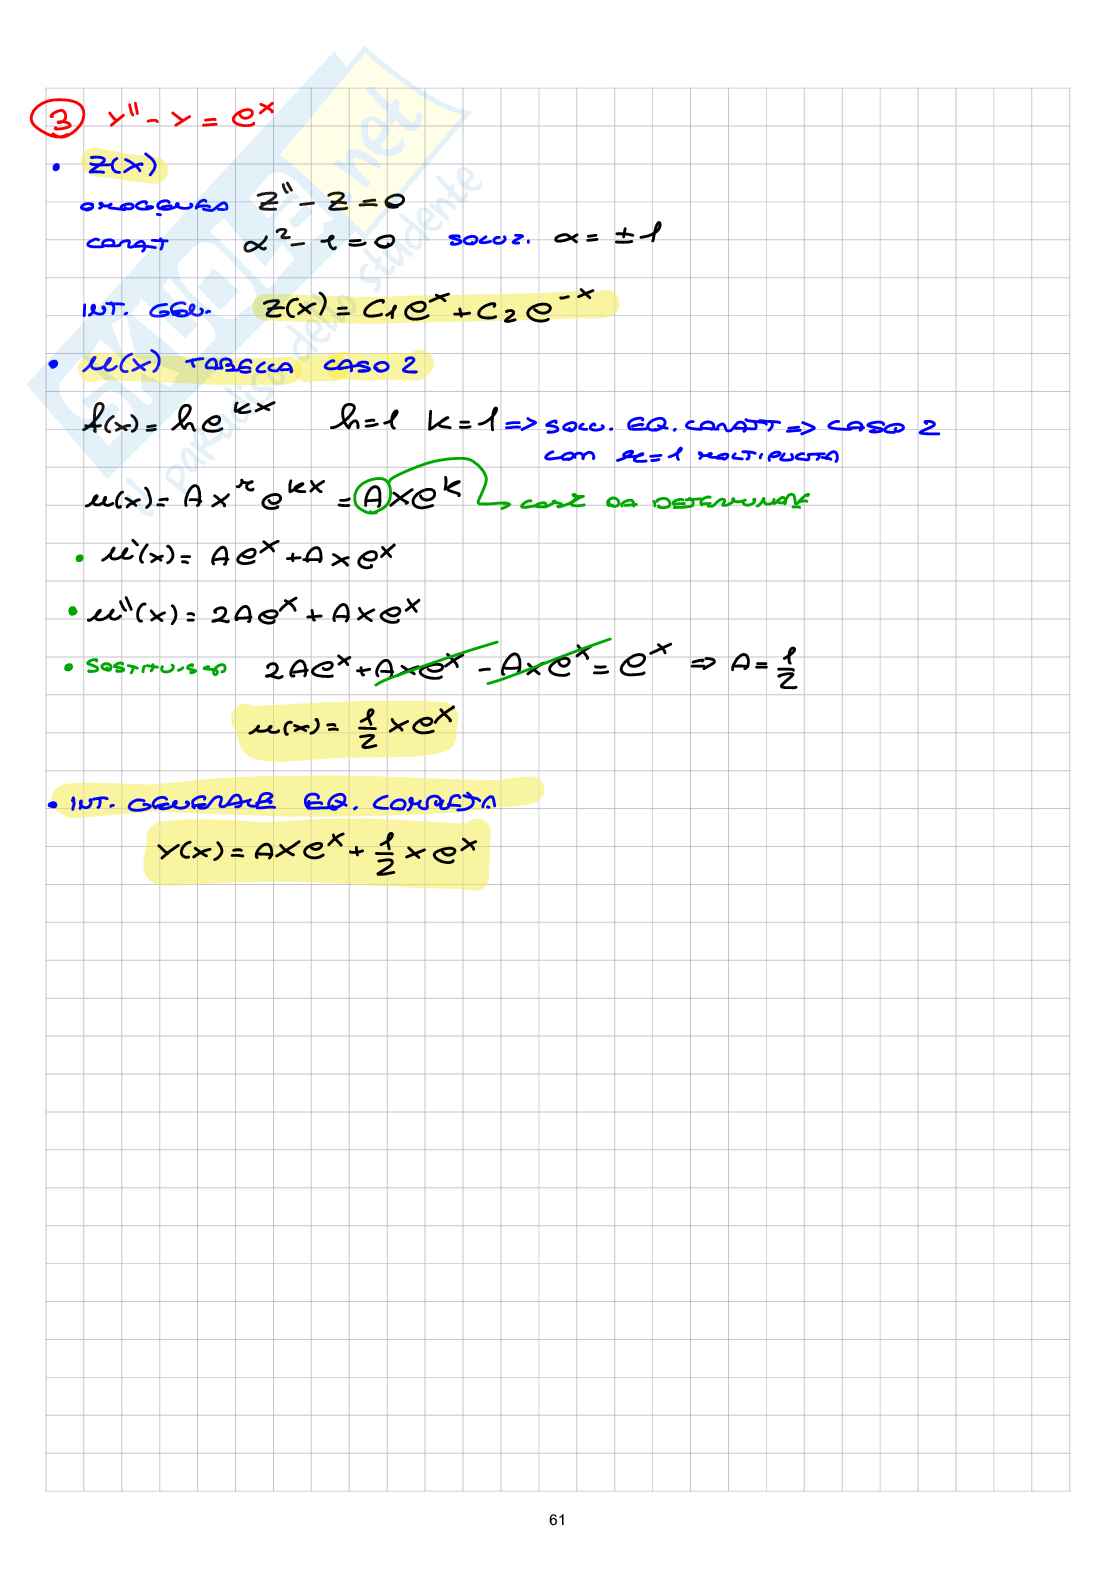 3 y'' - y = e^x
• Z(x)
OMOGENEA Z'' - Z = 0
CARATT α² - 1 = 0 SOLUZ. α = ±1
INT. GEN. Z(x) = C1 e^x + C2 e^-x
• u(x) TABELLA CASO 2
f(x) = h e^kx h=1 k=1 => SOLU. EQ. CARATT => CASO 2
CON r=1 MOLTIPLICITÀ
u(x) = A x^r e^kx = A x e^k → COST DA DETERMINARE
• u'(x) = A e^x + A x e^x
• u''(x) = 2A e^x + A x e^x
• SOSTITUISCO 2A e^x + A x e^x - A x e^x = e^x => A = 1/2
u(x) = 1/2 x e^x
• INT. GENERALE EQ. COMPLETA
y(x) = A x e^x + 1/2 x e^x
SKUOLA.net
il paradiso dello studente
61